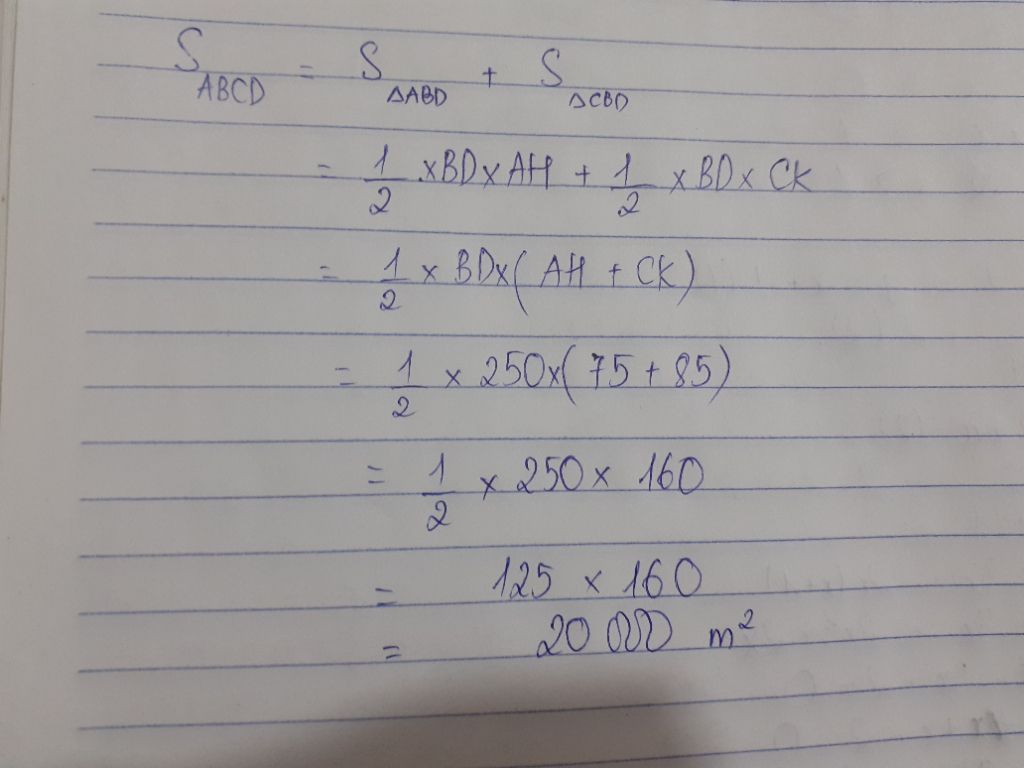 S ABCD = S ΔABD + S ΔCBD
= 1/2 × BD × AH + 1/2 × BD × CK
= 1/2 × BD × ( AH + CK )
= 1/2 × 250 × ( 75 + 85 )
= 1/2 × 250 × 160
= 125 × 160
= 20 000 m²